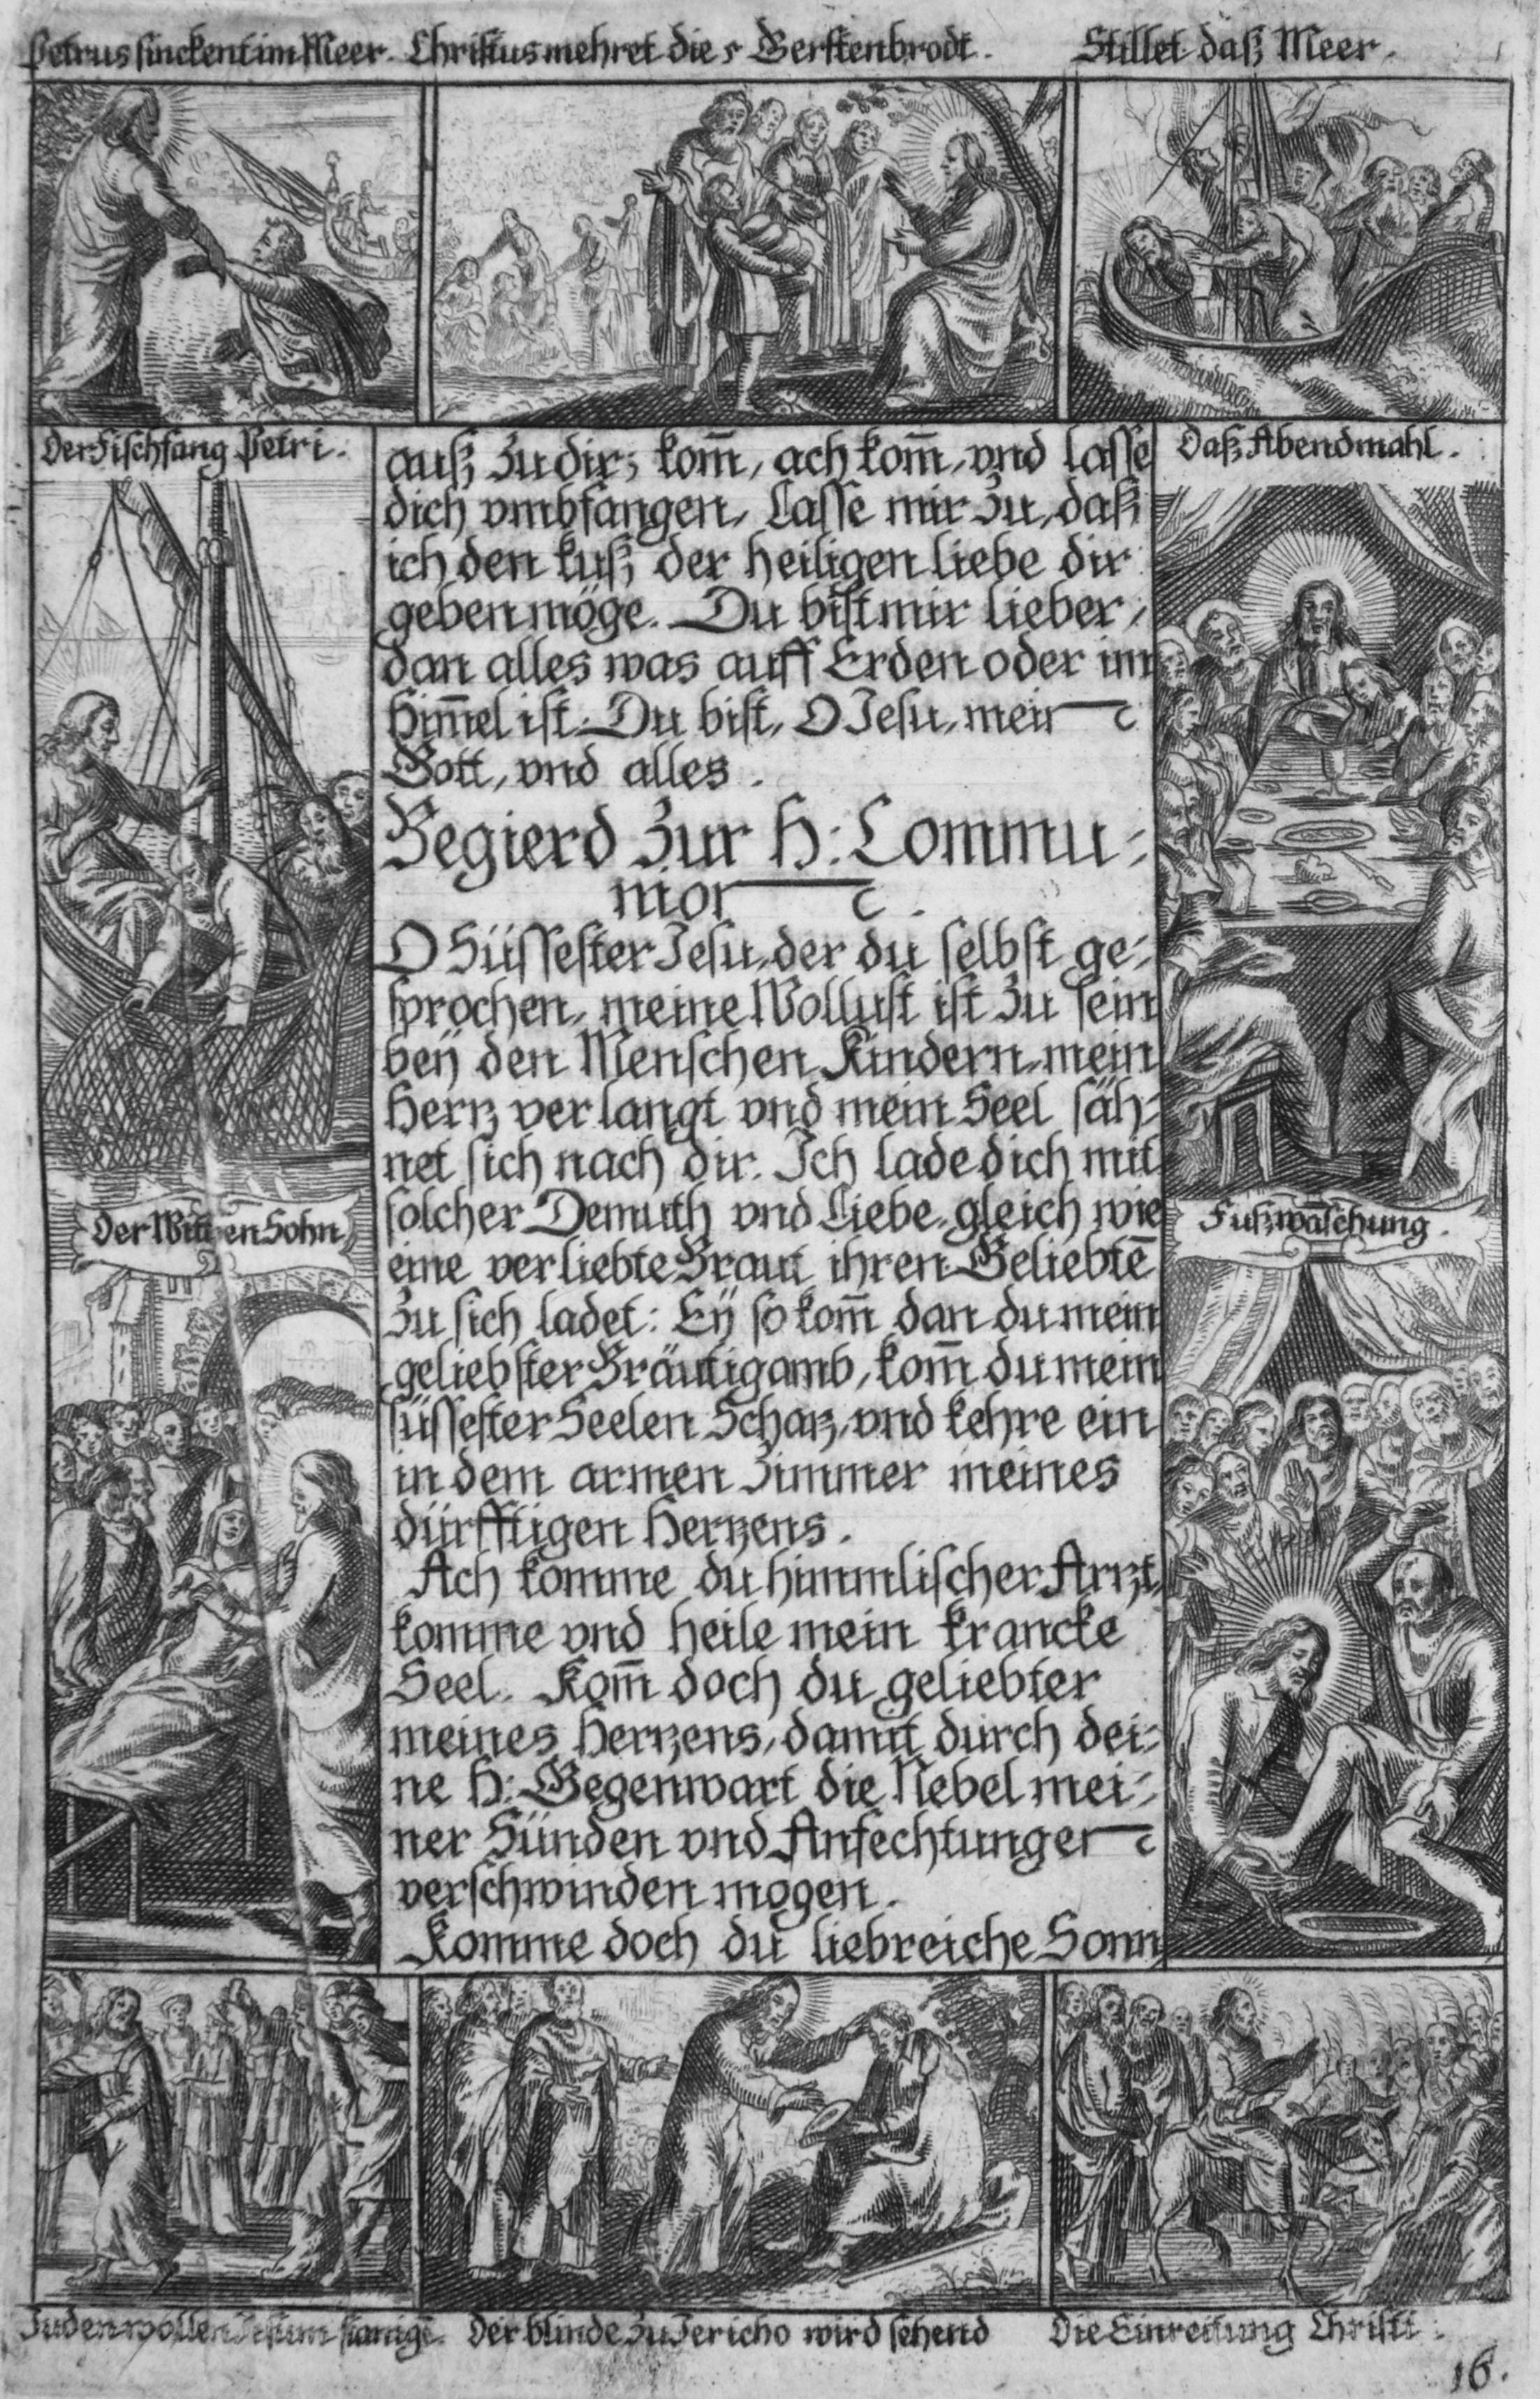 Petrus sinckent im Meer. Christus mehret die 5 Gerstenbrodt. Stillet daß Meer.
Der Fischfang Petri.
Daß Abendmahl.
auß zu dir; kom̅, ach kom̅, vnd lasse
dich vmbfangen, Lasse mir zu, daß
ich den kuß der heiligen liebe dir
geben möge. Du bist mir lieber,
dan alles was auff Erden oder im
Him̅el ist. Du bist, O Jesu, mein
Gott, vnd alles.
Begierd zur H: Commu-
nion.
O Süssester Jesu, der du selbst ge-
sprochen, meine Wollust ist zu sein
beÿ den Menschen Kindern, mein
Hertz verlangt vnd mein Seel säh-
net sich nach dir. Ich lade dich mit
solcher Demuth vnd Liebe, gleich wie
eine verliebte Braut ihren Geliebte̅
zu sich ladet: Eÿ so kom̅ dan du mein
geliebster Bräutigamb, kom̅ du mein
süssester Seelen Schatz, vnd kehre ein
in dem armen Zimmer meines
dürfftigen Hertzens.
Ach komme du himmlischer Artzt,
komme vnd heile mein krancke
Seel. Kom̅ doch du geliebter
meines Hertzens, damit durch dei-
ne H: Gegenwart die Nebel mei-
ner Sünden vnd Anfechtungen
verschwinden mogen.
Komme doch du liebreiche Sonn
Der Wittwen Sohn
Fußwaschung.
Juden wollen Jesum Der blinde zu Jericho wird sehend Die Einreitung Christi.
16.